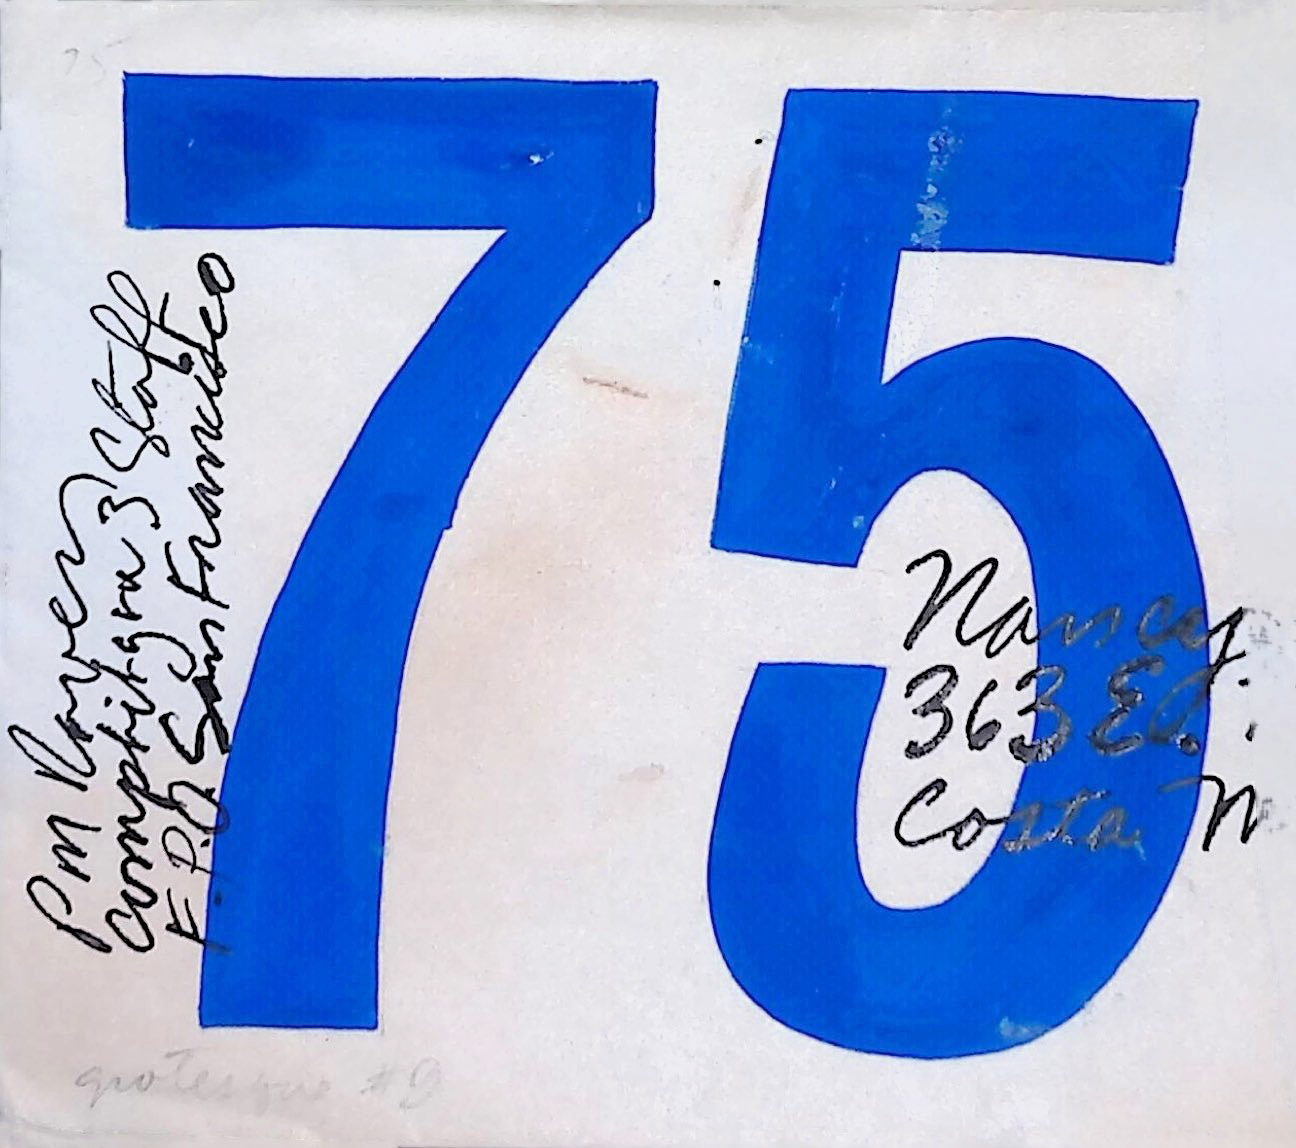 75
75
P M Rogers
comphibgru 3 Staff
F.P.O. San Francisco
Nancy
363 E
Costa M
grotesque #9